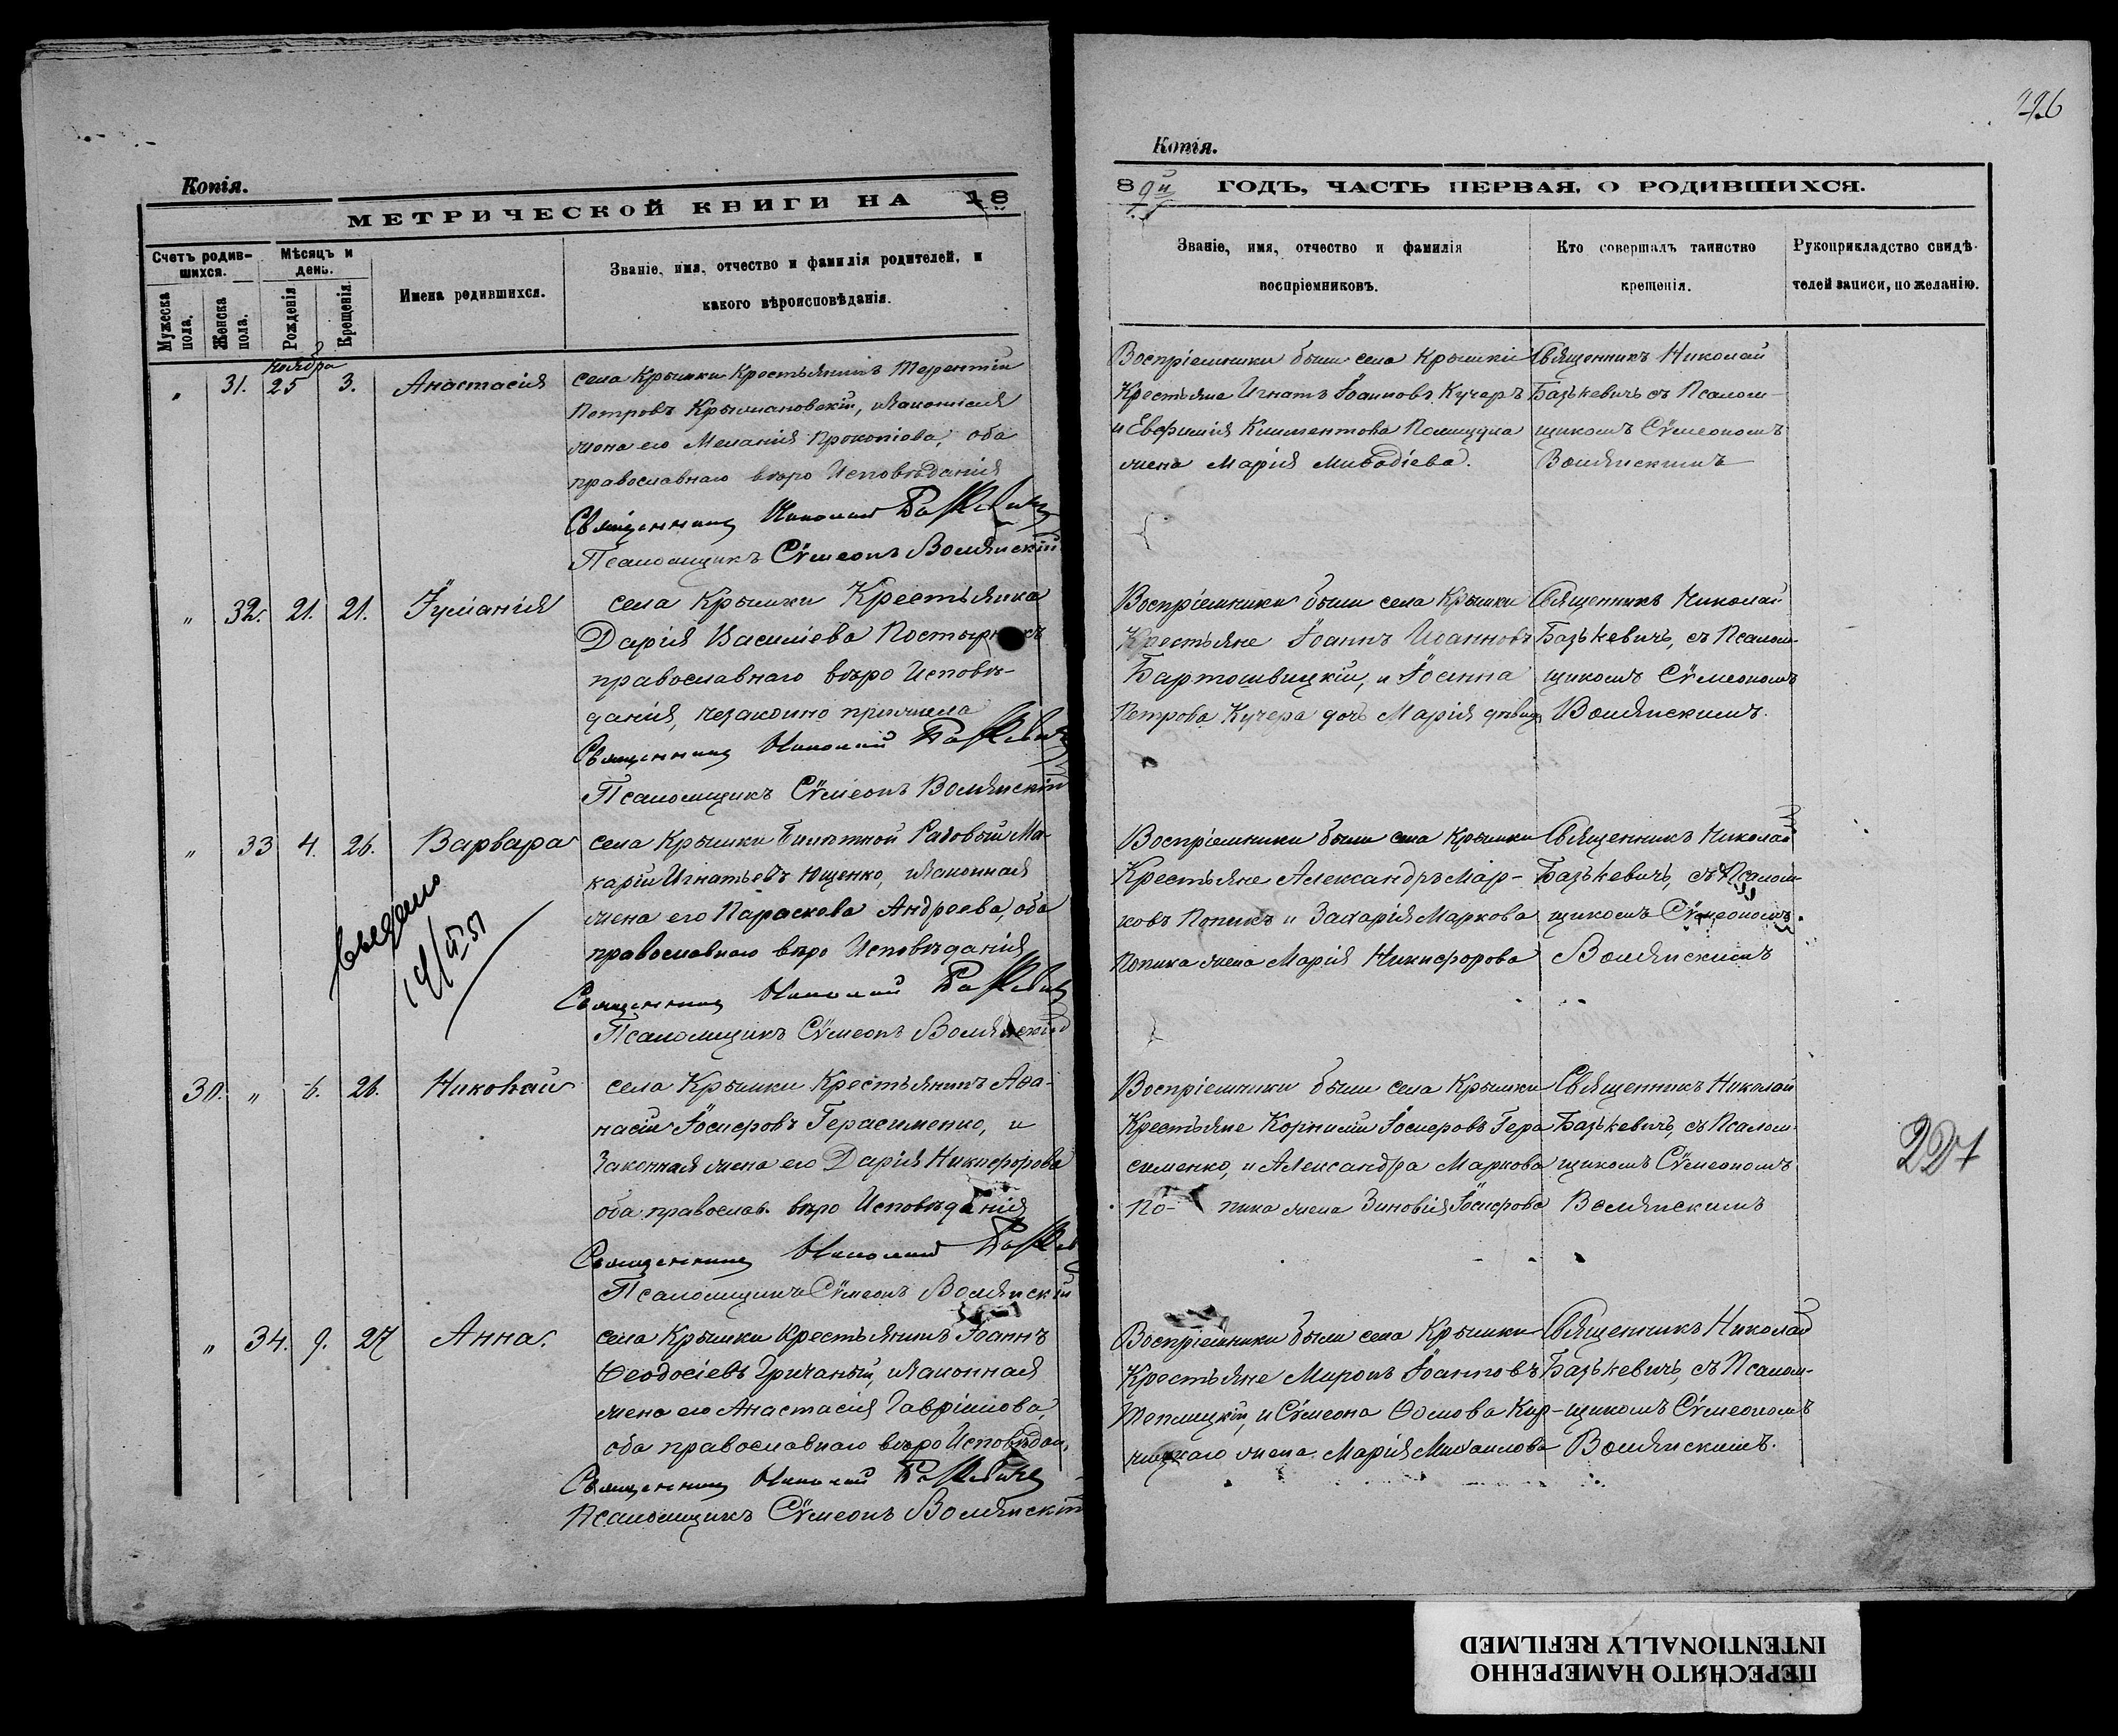 226
Копія.
МЕТРИЧЕСКОЙ КНИГИ НА 18
Счетъ родив-
шихся.
Мѣсяцъ и
день.
Мужеска
пола.
Женска
пола.
Рожденія
Крещенія.
Имена родившихся.
Званіе, имя, отчество и фамилія родителей, и
какого вѣроисповѣданія.
Ноября
„ 31. 25 3. Анастасія
села Крымки Крестьянинъ Терентій
Петровъ Крыжановскій, и законная
жена его Меланія Прокопіова, оба
православнаго вѣро Исповѣданія
Священникъ Николай Базькевичъ
Псаломщикъ Сѵмеонъ Волянскій
„ 32. 21. 21. Іуліанія
села Крымки Крестьянка
Дарія Василіева
православнаго вѣро Исповѣ-
данія, незаконно прижила
Священникъ Николай Базькевичъ
Псаломщикъ Сѵмеонъ Волянскій
„ 33 4. 26. Варвара
села Крымки Билетной Рядовый Ма-
карій Игнатьевъ Ющенко, и законная
жена его Параскева Андреева, оба
православнаго вѣро Исповѣданія
Священникъ Николай Базькевичъ
Псаломщикъ Сѵмеонъ Волянскій
30. „ 6. 26. Николай
села Крымки Крестьянинъ Аѳа-
насій Іосифовъ Герасименко, и
Законная жена его Дарія Никифорова
оба православ. вѣро Исповѣданія
Священникъ Николай
Псаломщикъ Сѵмеонъ Волянскій
„ 34. 9. 27 Анна.
села Крымки Крестьянинъ Іоаннъ
Ѳеодосіевъ Гричаный, и законная
жена его Анастасія Гавріилова,
оба православнаго вѣро Исповѣдан.
Священникъ Николай Базькевичъ
Псаломщикъ Сѵмеонъ Волянскій
Копія.
8 ГОДЪ, ЧАСТЬ ПЕРВАЯ, О РОДИВШИХСЯ.
Званіе, имя, отчество и фамилія
воспріемниковъ.
Кто совершалъ таинство
крещенія.
Рукоприкладство свидѣ-
телей записи, по желанію.
Воспріемники были села Крымки
Крестьяне Игнатъ Іоанновъ Кучеръ
и Евфимія Климентова
жена Марія
Священникъ Николай
Базькевичъ съ Псалом-
щикомъ Сѵмеономъ
Волянскимъ
Воспріемники были села Крымки
Крестьяне Іоаннъ Иоанновъ
Бартошвицкій, и Іоанна
Петрова Кучера дочь Марія девица
Священникъ Николай
Базькевичъ, съ Псалом-
щикомъ Сѵмеономъ
Волянскимъ.
Воспріемники были села Крымки
Крестьяне Александръ Мар-
ковъ Попикъ и Захарія Маркова
Попика жена Марія Никифорова
Священникъ Николай
Базькевичъ, съ Псалом-
щикомъ Сѵмеономъ
Волянскимъ
Воспріемники были села Крымки
Крестьяне Корнилій Іосифовъ Гера
сименко, и Александра Маркова
По- пика жена Зиновія Іосифова
Священникъ Николай
Базькевичъ, съ Псалом-
щикомъ Сѵмеономъ
Волянскимъ
Воспріемники были села Крымки
Крестьяне Миронъ Іоанновъ
Теплицкій, и Сѵмеона Ѳомова Кир-
жена Марія Михаилова
Священникъ Николай
Базькевичъ, съ Псалом-
щикомъ Сѵмеономъ
Волянскимъ.
ПЕРЕСНЯТО НАМЕРЕННО
INTENTIONALLY REFILMED